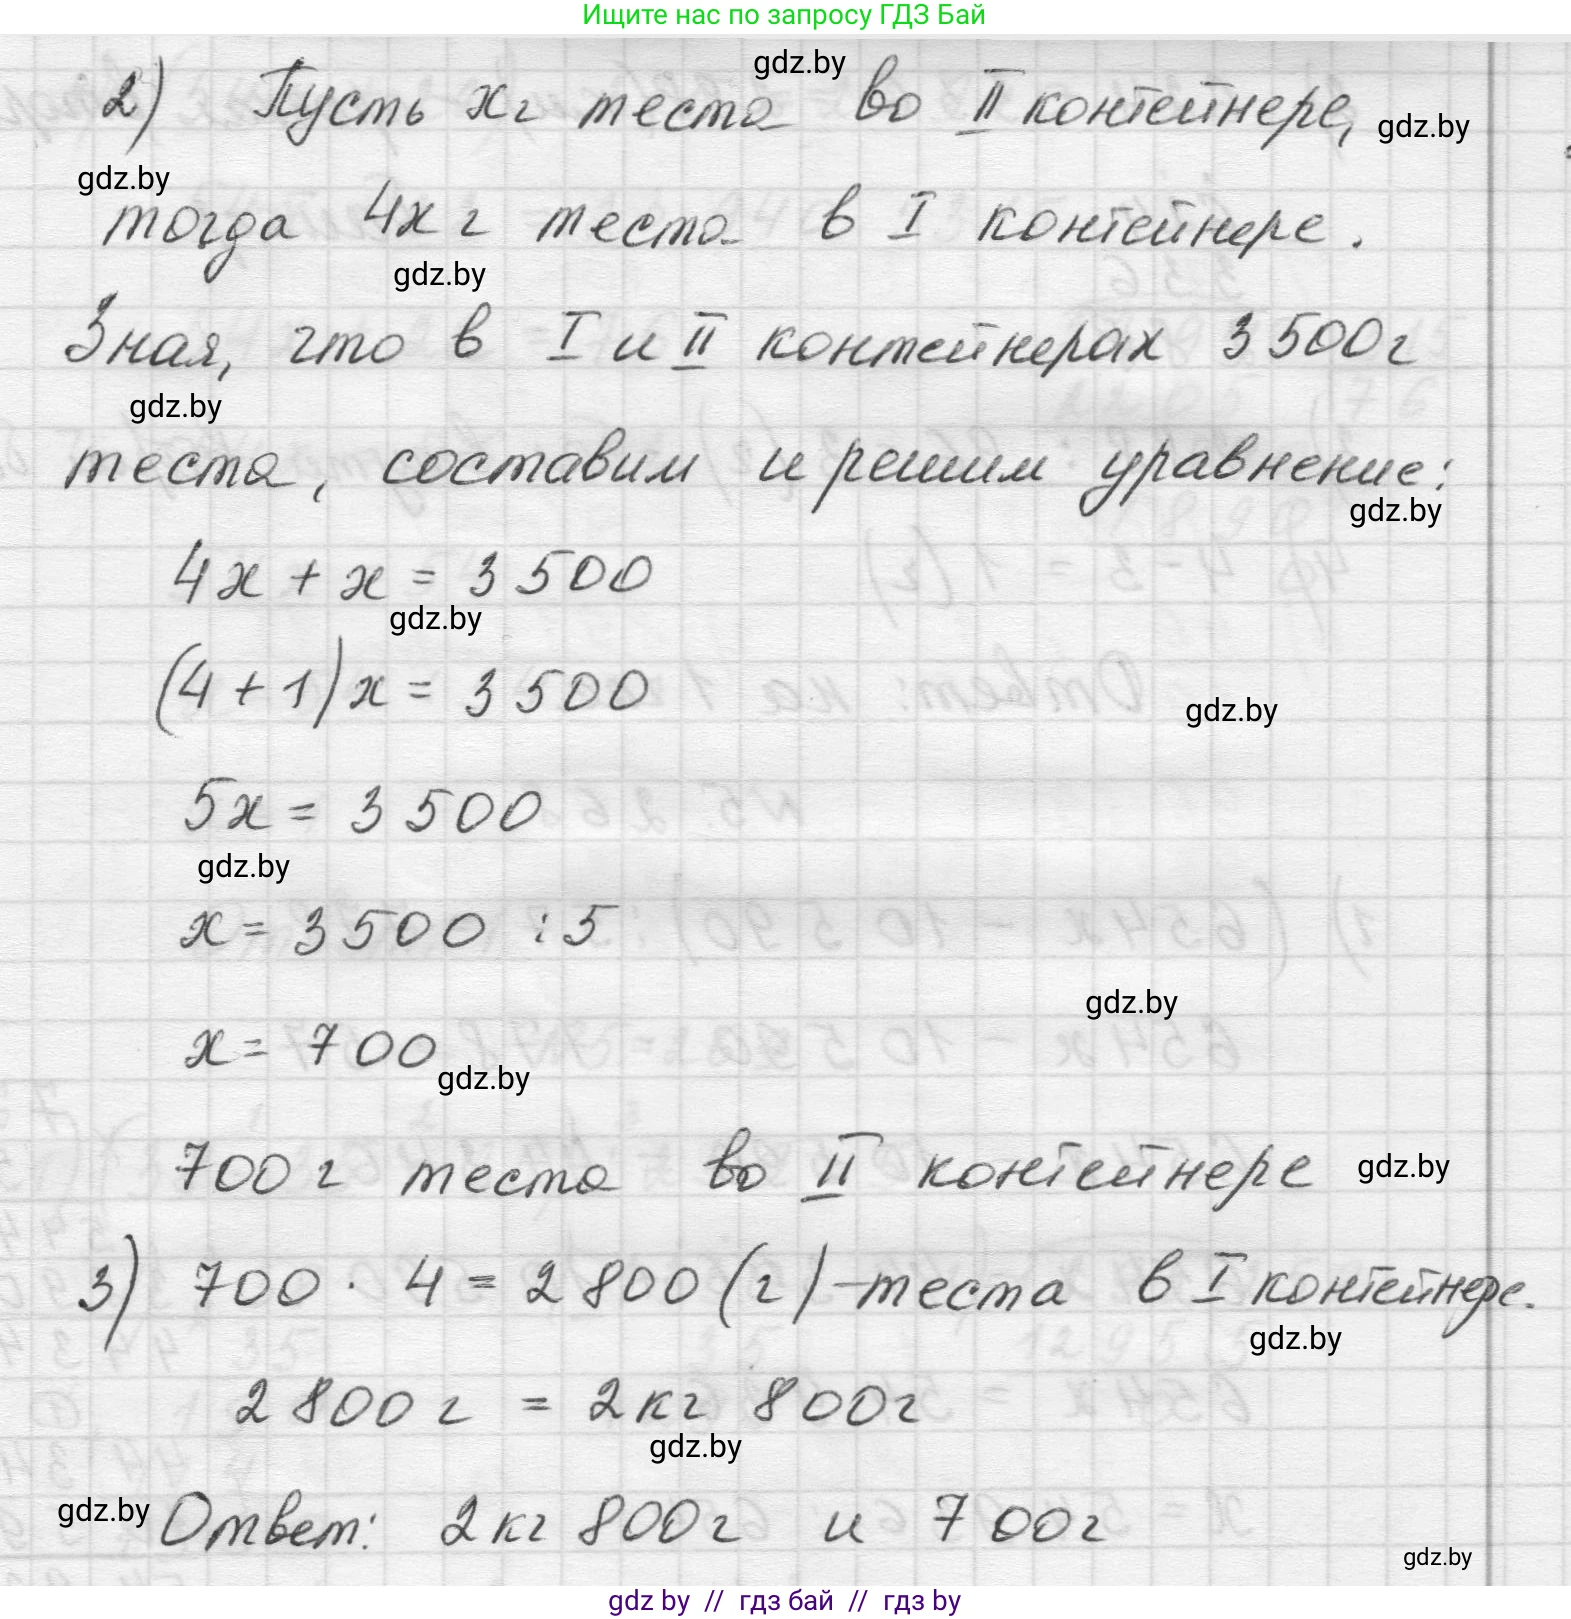 Ищите нас по запросу ГДЗ Бай
gdz.by
2) Пусть x г теста во II контейнере,
gdz.by
gdz.by
тогда 4x г теста в I контейнере.
gdz.by
Зная, что в I и II контейнерах 3 500 г
gdz.by
теста, составим и решим уравнение:
gdz.by
4x + x = 3 500
gdz.by
(4 + 1) x = 3 500
gdz.by
5x = 3 500
gdz.by
x = 3 500 : 5
gdz.by
x = 700
gdz.by
700 г теста во II контейнере
gdz.by
3) 700 · 4 = 2 800 (г) – теста в I контейнере.
gdz.by
2 800 г = 2 кг 800 г
gdz.by
gdz.by
Ответ: 2 кг 800 г и 700 г
gdz.by
gdz by // гдз бай // гдз by